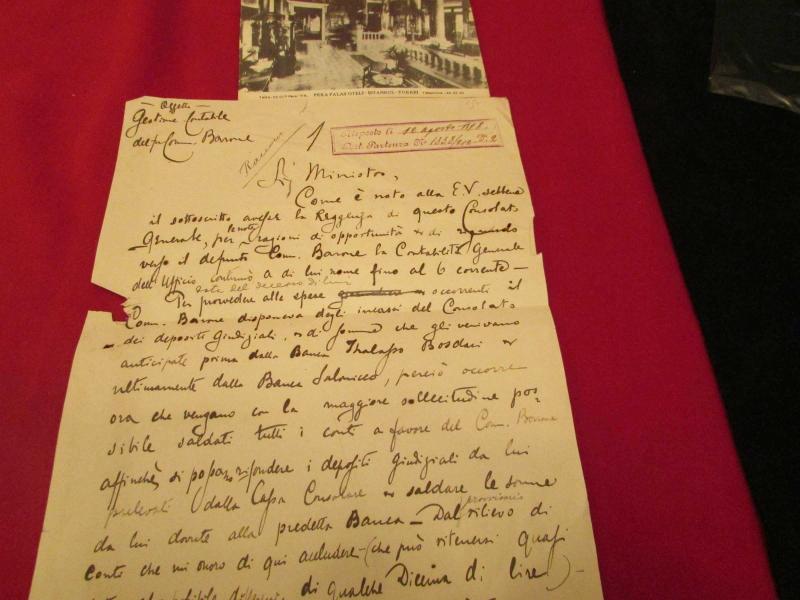 PERA PALAS OTELİ - İSTANBUL - TÜRKEİ
— Oggetto —
Gestione Contabile
del fu Comm. Barone
Raccom.
1
Risposto li 12 agosto
Prot. Partenza No
Sig Ministro,
Come è noto alla E.V. sebbene
il sottoscritto avesse la Reggenza di questo Consolato
Generale, per ragioni di opportunità e di riguardo
tenuto
verso il defunto Comm. Barone la Contabilità Generale
dell'Ufficio continuò a di lui nome fino al 6 corrente —
data del decesso di lui
Per provvedere alle spese occorrenti il
Comm. Barone disponeva degli incassi del Consolato
— dei depositi giudiziali, e di somme che gli venivano
anticipate prima dalla Banca Thalasso Bosdari e
ultimamente dalla Banca Salonicco, perciò occorre
ora che vengano con la maggiore sollecitudine pos-
sibile saldati tutti i conti a favore del Comm. Barone
affinchè si possano rifondere i depositi giudiziali da lui
prelevati dalla Cassa Consolare e saldare le somme
da lui dovute alla predetta Banca — Dal rilievo di
provvisorio
conto che mi onoro di qui accludere — (che può ritenersi quasi
di qualche Diecina di lire) —